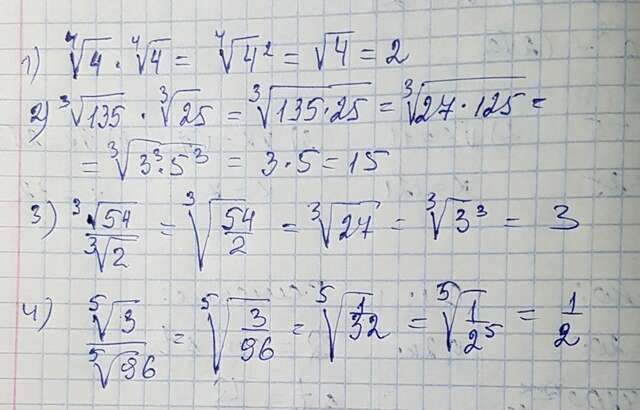 1) ⁴√4 · ⁴√4 = ⁴√4² = √4 = 2
2) ³√135 · ³√25 = ³√(135·25) = ³√(27·125) =
= ³√(3³·5³) = 3·5 = 15
3) ³√54 / ³√2 = ³√(54/2) = ³√27 = ³√3³ = 3
4) ⁵√3 / ⁵√96 = ⁵√(3/96) = ⁵√(1/32) = ⁵√(1/2⁵) = 1/2